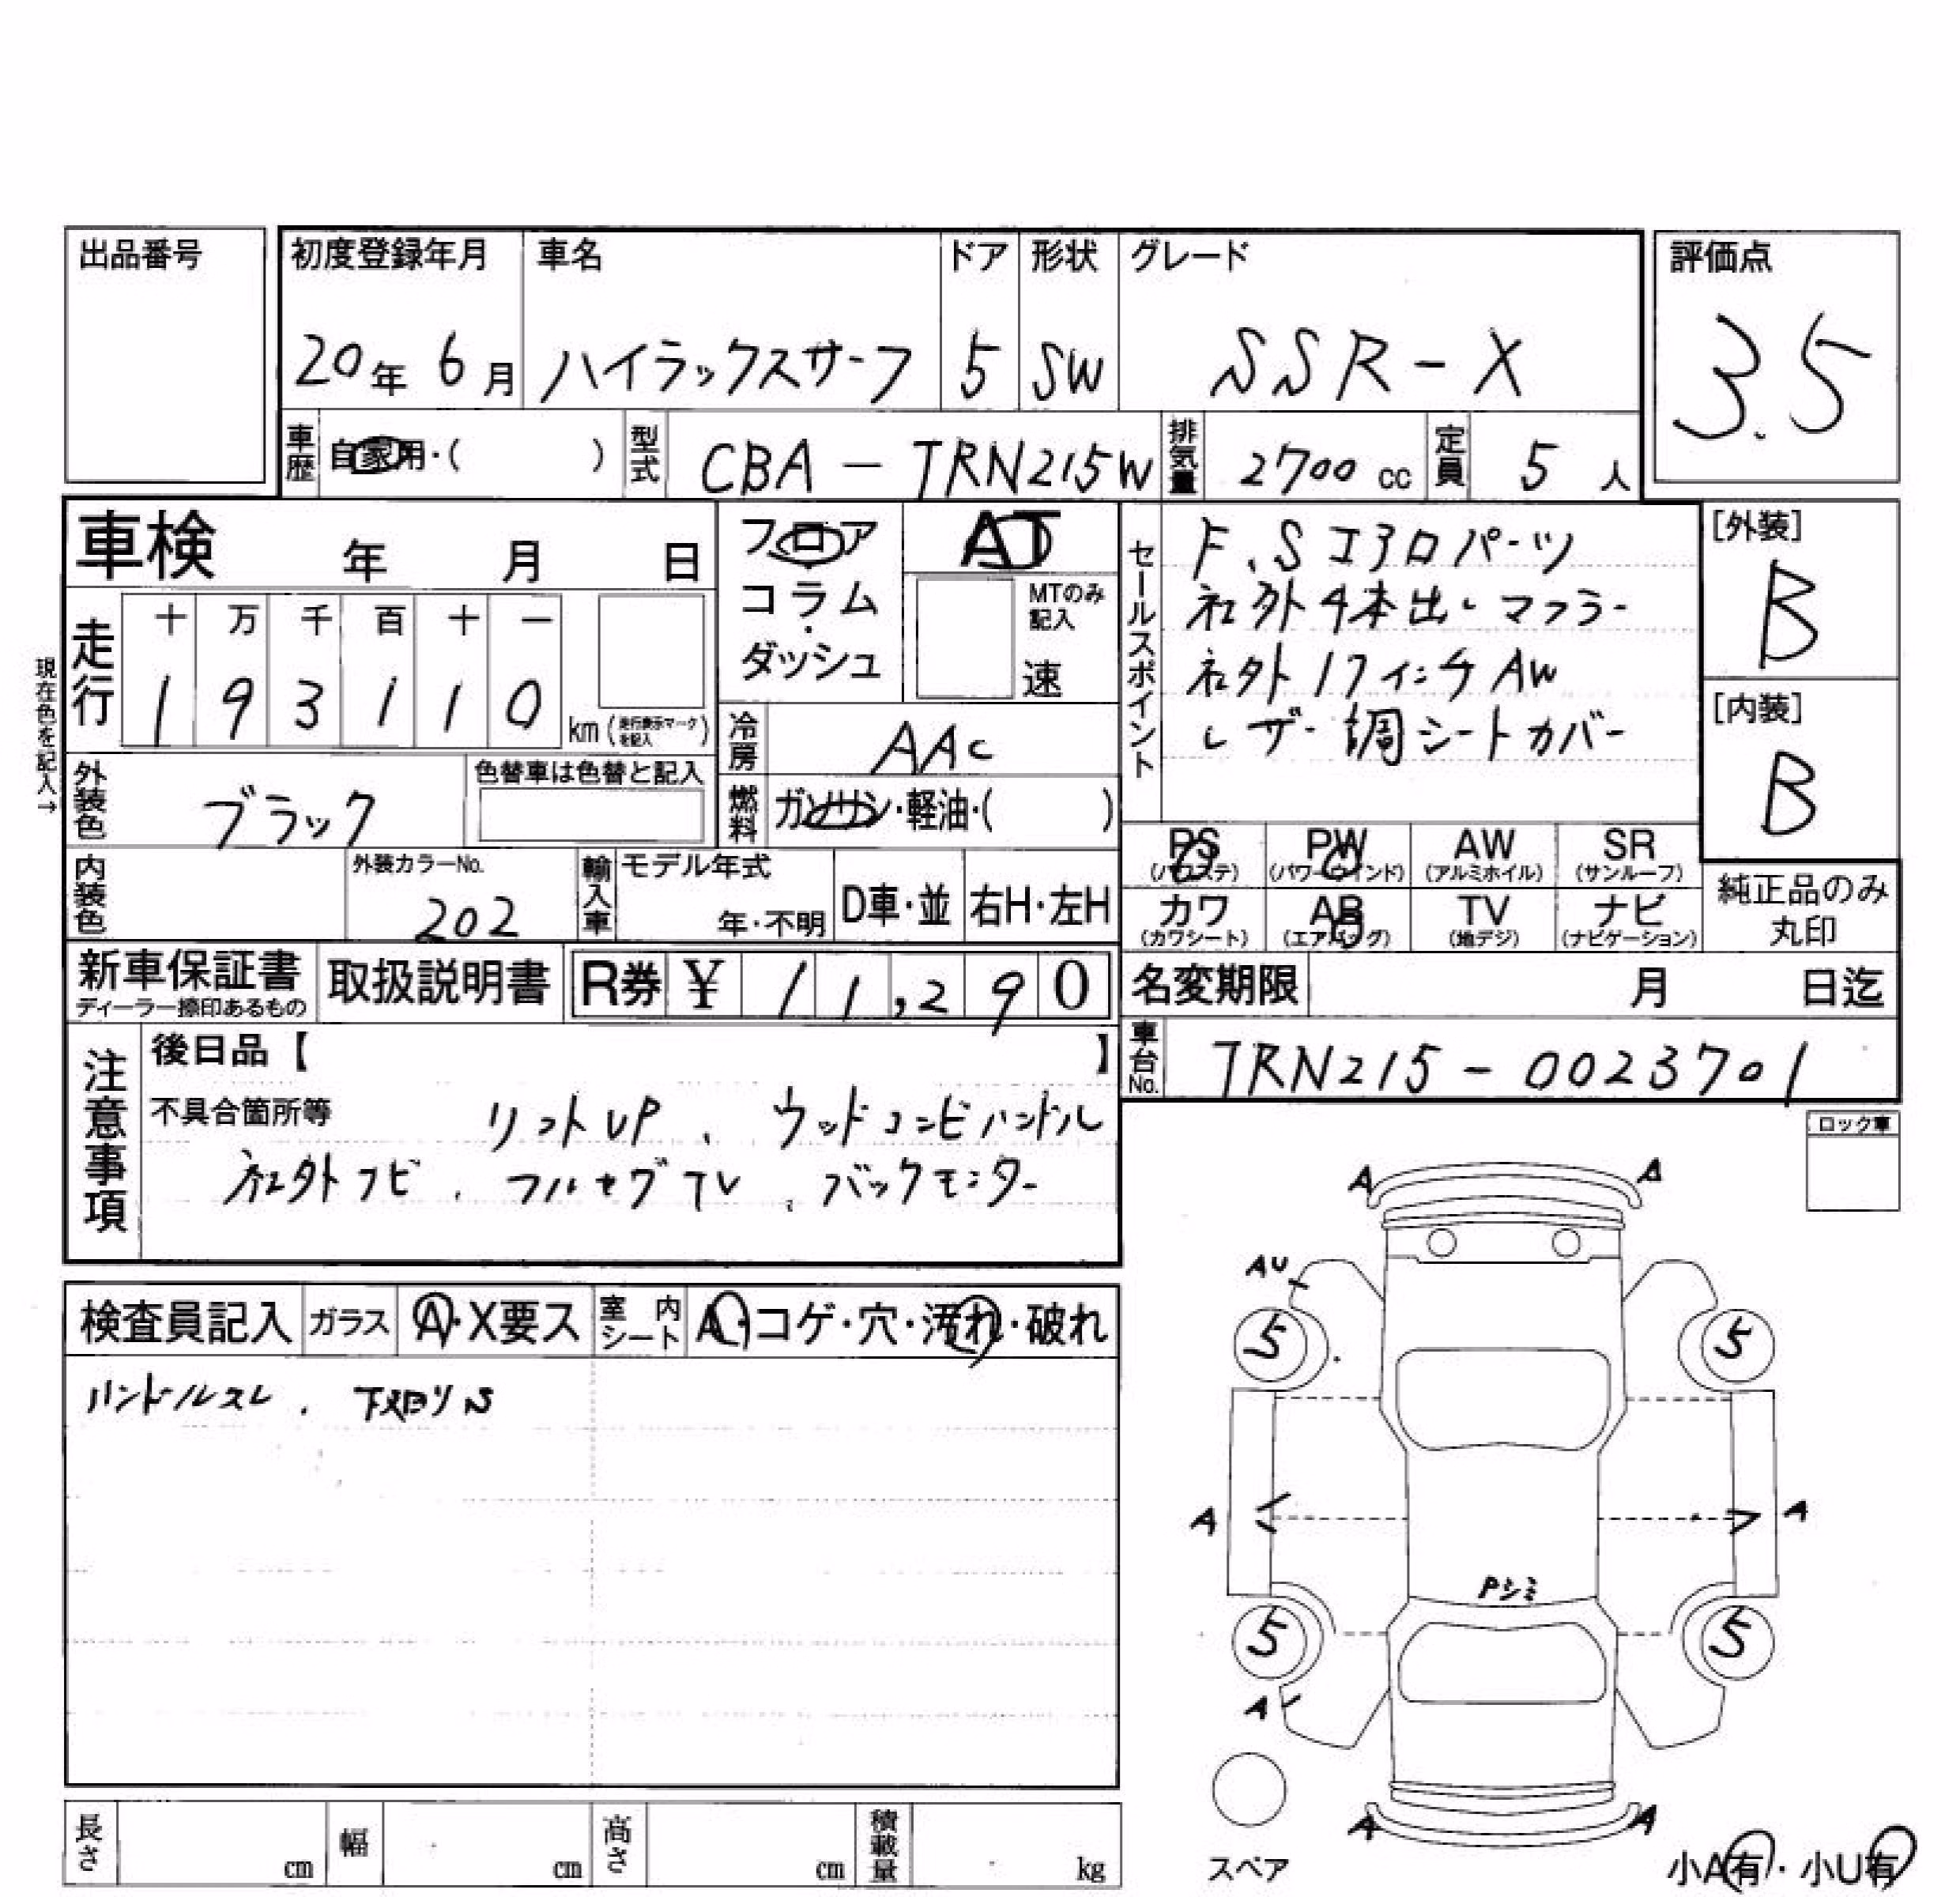 出品番号
初度登録年月 車名 ドア 形状 グレード 評価点
20年 6月 ハイラックスサーフ 5 SW SSR-X 3.5
車歴 自家用・( ) 型式 CBA-TRN215W 排気量 2700 cc 定員 5 人
車検 年 月 日
フロア AT
コラム・ MTのみ記入
ダッシュ 速
現在色を記入→
走行 十 万 千 百 十 一
1 9 3 1 1 0 km (走行表示マークを記入)
冷房 AAC
燃料 ガソリン・軽油・( )
外装色 ブラック 色替車は色替と記入
内装色 外装カラーNo. 202 輸入車 モデル年式 年・不明 D車・並 右H・左H
セールスポイント
F、Sエアロパーツ
社外4本出しマフラー
社外17インチAW
レザー調シートカバー
[外装] B
[内装] B
PS (パワステ) PW (パワーウインド) AW (アルミホイル) SR (サンルーフ)
カワ (カワシート) AB (エアバッグ) TV (地デジ) ナビ (ナビゲーション)
純正品のみ
丸印
新車保証書 ディーラー捺印あるもの 取扱説明書 R券 ¥ 11,290
名変期限 月 日迄
車台No. TRN215-0023701
注意事項
後日品【 】
不具合箇所等 リフトUP、ウッドコンビハンドル
社外ナビ、フルセグTV、バックモニター
ロック車
検査員記入 ガラス A・X要ス 室内シート A・コゲ・穴・汚れ・破れ
ハンドルスレ、下廻りS
A A
AU
5 5
A A
Pシミ
5 5
A
A A
スペア
小A有・小U有
長さ cm 幅 cm 高さ cm 積載量 kg